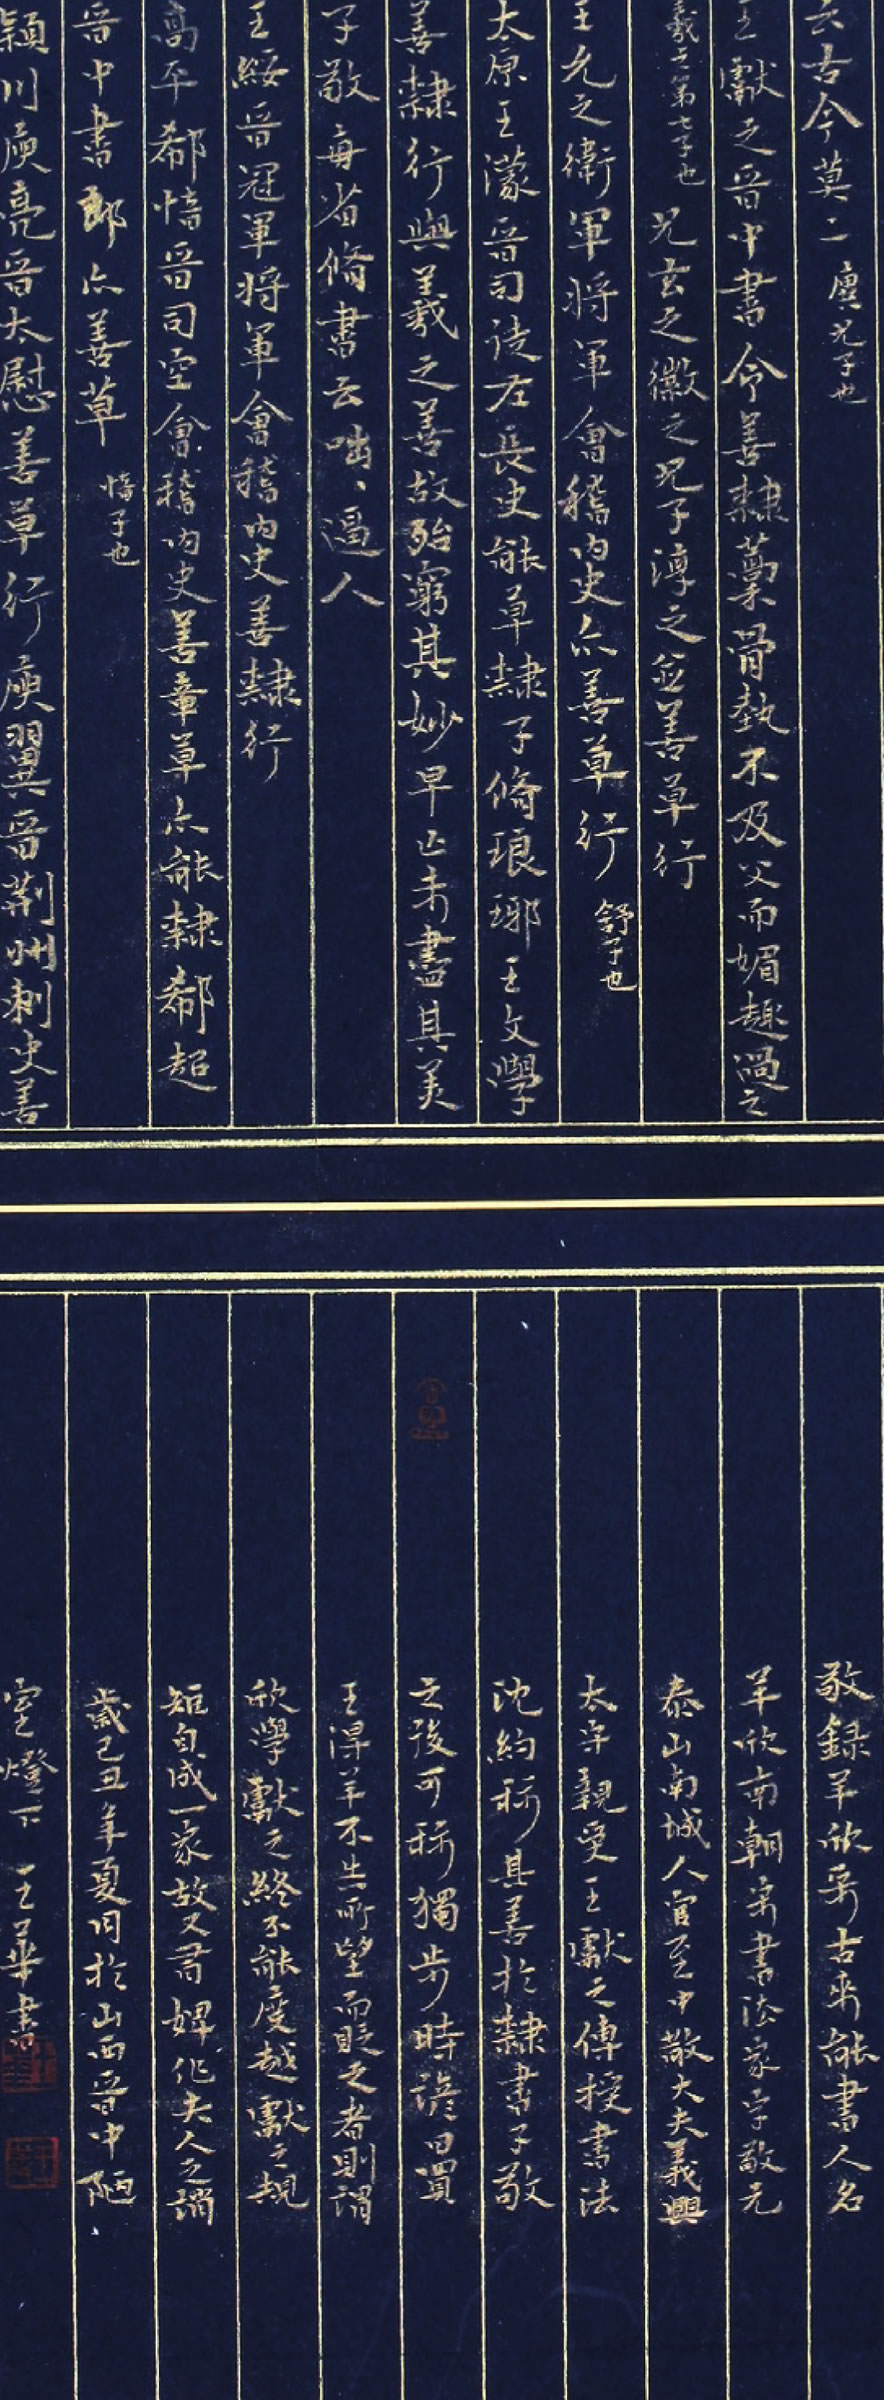 云古今莫二 廙兄子也
王獻之晉中書令善隸藁骨勢不及父而媚趣過之
羲之第七子也 兄玄之徽之兄子淳之並善草行
王允之衛軍將軍會稽內史亦善草行 舒子也
太原王濛晉司徒左長史能草隸子脩琅琊王文學
善隸行與羲之善故殆窮其妙早亡未盡其美
子敬每省脩書云咄咄逼人
王綏晉冠軍將軍會稽內史善隸行
高平郗愔晉司空會稽內史善章草亦能隸郗超
晉中書郎亦善草 愔子也
潁川庾亮晉太慰善草行庾翼晉荊州刺史善
敬錄羊欣采古來能書人名
羊欣南朝宋書法家字敬元
泰山南城人官至中散大夫義興
太守親受王獻之傳授書法
沈約稱其善於隸書子敬
之後可稱獨步時諺曰買
王得羊不失所望而貶之者則謂
欣學獻之終不能度越獻之規
矩自成一家故又有婢作夫人之謂
歲己丑年夏月於山西晉中陋
室燈下 王華書